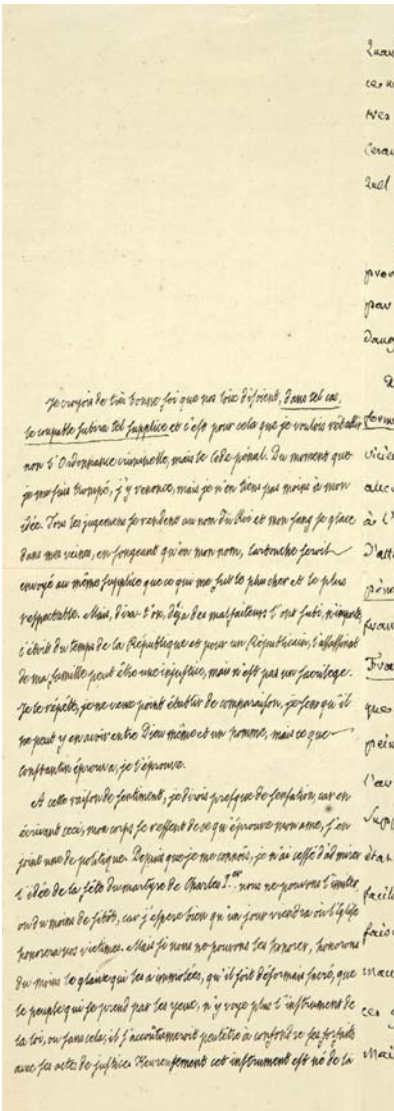 Je croyois de très bonne foi que nos loix disoient, dans tel cas,
le coupable subira tel supplice et c'est pour cela que je voulois rétablir
non l'Ordonnance criminelle, mais le Code pénal. Du moment que
je me suis trompé, j'y renonce, mais je n'en tiens pas moins à mon
idée. Tous les jugemens se rendent au nom du Roi et mon sang se glace
dans mes veines, en songeant qu'en mon nom, Cartouche seroit
envoyé au même supplice que ce qui me fut le plus cher et le plus
respectable. Mais, dira-t'on, déja des malfaiteurs l'ont subi, n'importe,
c'étoit du temps de la République et pour un Républicain, l'assassinat
de ma famille peut être une injustice, mais n'est pas un sacrilege.
Je le répète, je ne veux point établir de comparaison, je sens qu'il
ne peut y en avoir entre Dieu même et un homme, mais ce que
Constantin éprouva, je l'éprouve.
A cette raison de sentiment, je dirois presque de sensation, car en
écrivant ceci, mon corps se ressent de ce qu'éprouve mon ame, j'en
joint une de politique. Depuis que je me connois, je n'ai cessé d'admirer
l'idée de la fête du martyre de Charles I.er nous ne pouvons l'imiter,
ou du moins de sitôt, car j'espere bien qu'un jour viendra où l'Eglise
honorera nos victimes. Mais si nous ne pouvons les honorer, honorons
du moins le glaive qui les a immolées, qu'il soit désormais sacré, que
le peuple qui se prend par les yeux, n'y voye plus l'instrument de
la loi, ou sans cela, il s'accoutumeroit peutêtre à confondre ses forfaits
avec ses actes de justice. Heureusement cet instrument est né de la